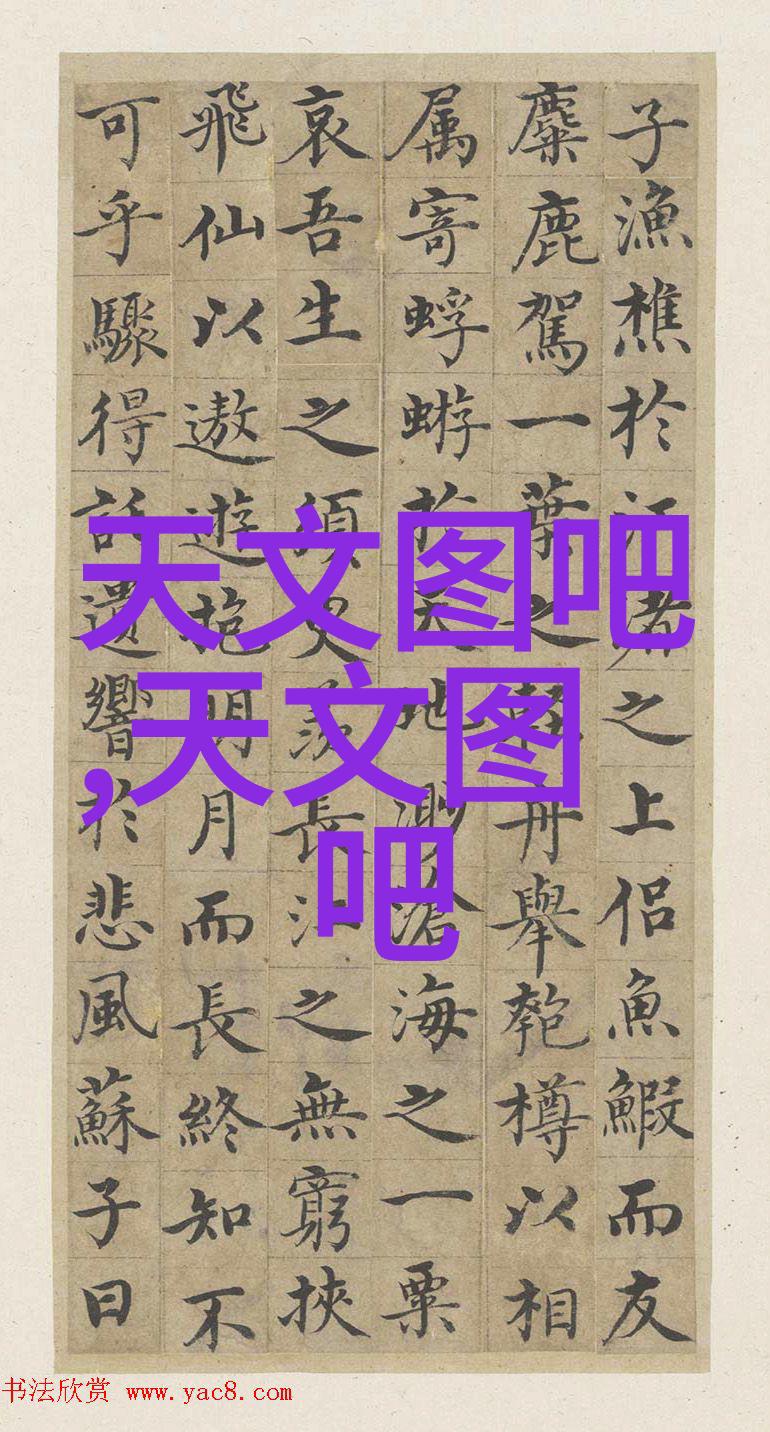 子漁樵於江渚之上侶魚鰕而友
麋鹿駕一葉之輕舟舉匏樽以相
属寄蜉蝣於天地渺滄海之一粟
哀吾生之須臾羨長江之無窮挾
飛仙以遨遊抱明月而長終知不
可乎驟得託遺響於悲風蘇子曰
天文图吧
,天文图
吧
书法欣赏 www.yac8.com